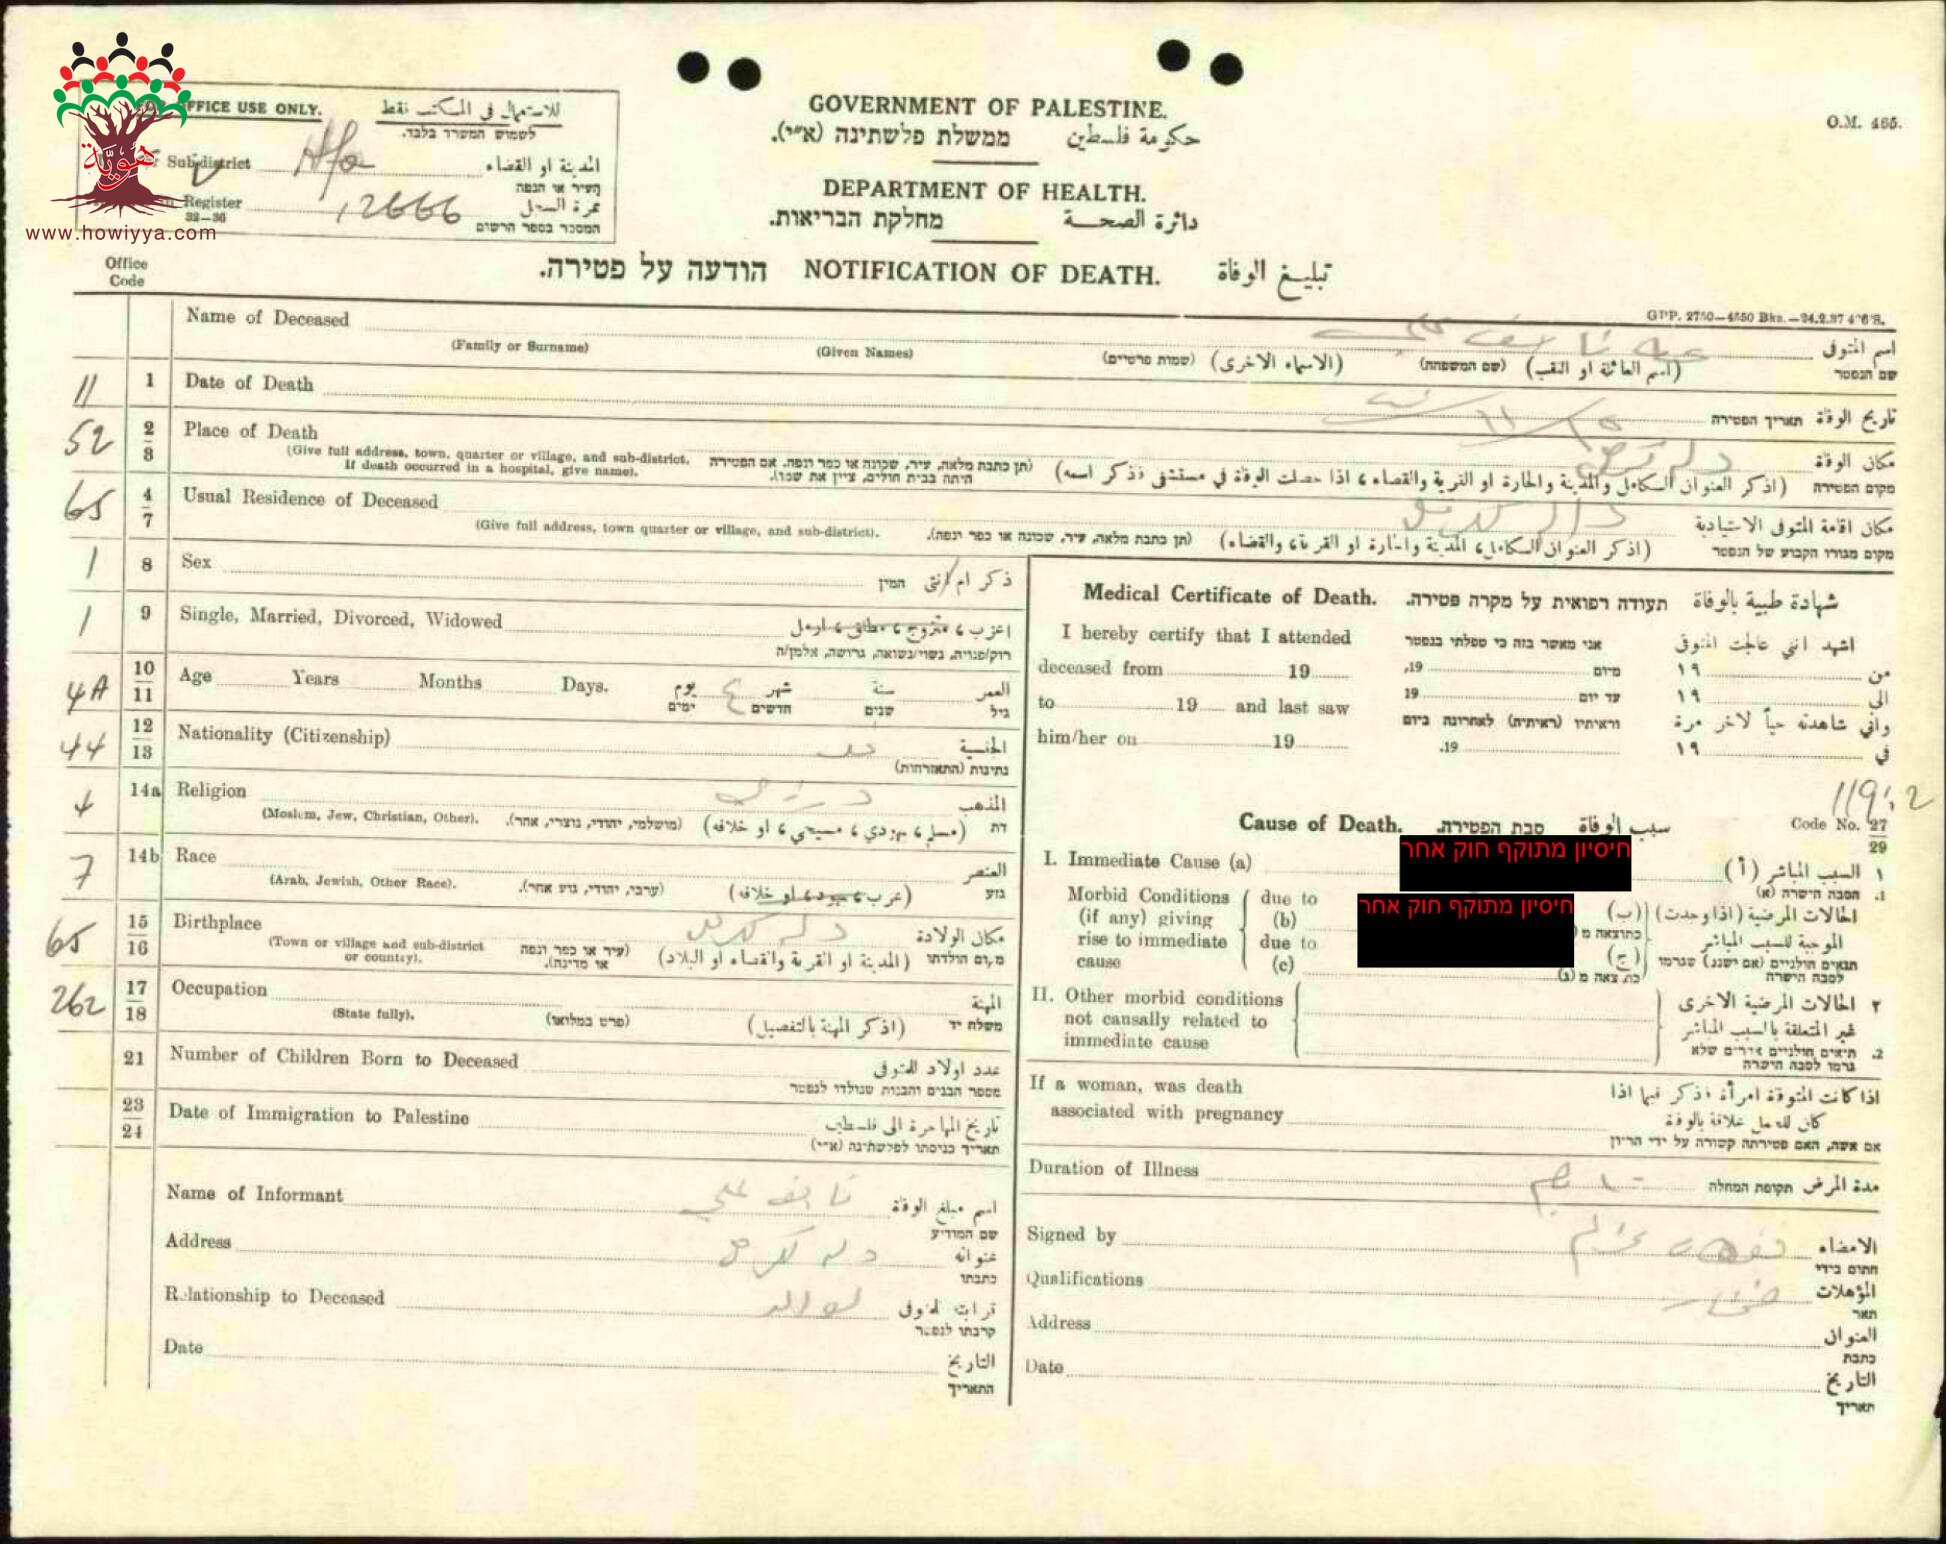 هويّة
www.howiyya.com
OFFICE USE ONLY. للاستعمال في المكتب فقط
לשמוש המשרד בלבד.
Sub-district المدينة او القضاء
העיר או הנפה
Register 12666 نمرة السجل
32—36
המספר בספר הרשום
GOVERNMENT OF PALESTINE.
ממשלת פלשתינה (א״י). حكومة فلسطين
DEPARTMENT OF HEALTH.
מחלקת הבריאות. دائرة الصحة
O.M. 465.
הודעה על פטירה. NOTIFICATION OF DEATH. تبليغ الوفاة
Office
Code
GPP. 2750—4550 Bks.—24.2.37
Name of Deceased اسم المتوفى
(Family or Surname) (Given Names) (שמות פרטיים) (الاسماء الاخرى) (שם המשפחה) (اسم العائلة او اللقب) שם הנפטר
11 1 Date of Death תאריך הפטירה تاريخ الوفاة
52 2/3 Place of Death مكان الوفاة
(Give full address, town, quarter or village, and sub-district. If death occurred in a hospital, give name).
(תן כתבת מלאה, עיר, שכונה או כפר ונפה. אם הפטירה היתה בבית חולים, ציין את שמו).
(اذكر العنوان الكامل والمدينة والحارة او القرية والقضاء، اذا حصلت الوفاة في مستشفى فذكر اسمه) מקום הפטירה
65 4/7 Usual Residence of Deceased مكان اقامة المتوفى الاعتيادية
(Give full address, town quarter or village, and sub-district). (תן כתבת מלאה, עיר, שכונה או כפר ונפה). (اذكر العنوان الكامل، المدينة والحارة او القرية، والقضاء) מקום מגורו הקבוע של הנפטר
1 8 Sex המין ذكر ام انثى
1 9 Single, Married, Divorced, Widowed اعزب، متزوج، مطلق، ارمل
רוק/פנויה, נשוי/נשואה, גרושה, אלמן/ה
4A 10/11 Age Years Months Days. يوم ٤ شهر سنة العمر
ימים חדשים שנים גיל
44 12/13 Nationality (Citizenship) الجنسية
נתינות (התאזרחות)
4 14a Religion درزي المذهب
(Moslem, Jew, Christian, Other). (מושלמי, יהודי, נוצרי, אחר). (مسلم، يهودي، مسيحي، او خلافه) דת
7 14b Race العنصر
(Arab, Jewish, Other Race). (ערבי, יהודי, גזע אחר). (عرب، يهود، او خلافه) גזע
65 15/16 Birthplace مكان الولادة
(Town or village and sub-district or country). (עיר או כפר ונפה או מדינה). (المدينة او القرية والقضاء او البلاد) מקום הולדתו
262 17/18 Occupation المهنة
(State fully). (פרט במלואו) (اذكر المهنة بالتفصيل) משלח יד
21 Number of Children Born to Deceased عدد اولاد المتوفى
מספר הבנים והבנות שנולדו לנפטר
23/24 Date of Immigration to Palestine تاريخ المهاجرة الى فلسطين
תאריך כניסתו לפלשתינה (א״י)
Name of Informant نايف علي اسم مبلغ الوفاة
שם המודיע
Address عنوانه
כתבתו
Relationship to Deceased قرابته للمتوفى
קרבתו לנפטר
Date التاريخ
התאריך
Medical Certificate of Death. תעודה רפואית על מקרה פטירה. شهادة طبية بالوفاة
I hereby certify that I attended אני מאשר בזה כי טפלתי בנפטר اشهد انني عالجت المتوفى
deceased from 19 19, מיום ١٩ من
to 19 and last saw 19 עד יום ١٩ الى
וראיתיו (ראיתיה) לאחרונה ביום واني شاهدته حياً لاخر مرة
him/her on 19 19. ١٩ في
Cause of Death. סבת הפטירה. سبب الوفاة Code No. 27/29
I. Immediate Cause (a) חיסיון מתוקף חוק אחר (أ) السبب المباشر ١
1. הסבה הישרה (א)
Morbid Conditions (if any) giving rise to immediate cause
due to (b) חיסיון מתוקף חוק אחר (ب)
due to (c) (ج)
الحالات المرضية (اذا وجدت) الموجبة للسبب المباشر
תנאים חולניים (אם ישנם) שגרמו לסבה הישרה
II. Other morbid conditions not causally related to immediate cause
٢ الحالات المرضية الاخرى غير المتعلقة بالسبب المباشر
2. תנאים חולניים אחרים שלא גרמו לסבה הישרה
If a woman, was death associated with pregnancy
اذا كانت المتوفاة امرأة فذكر فيما اذا كان للحمل علاقة بالوفاة
אם אשה, האם פטירתה קשורה על ידי הריון
Duration of Illness תקופת המחלה مدة المرض
Signed by الامضاء
חתום בידי
Qualifications المؤهلات
תאר
Address العنوان
כתבת
Date التاريخ
תאריך